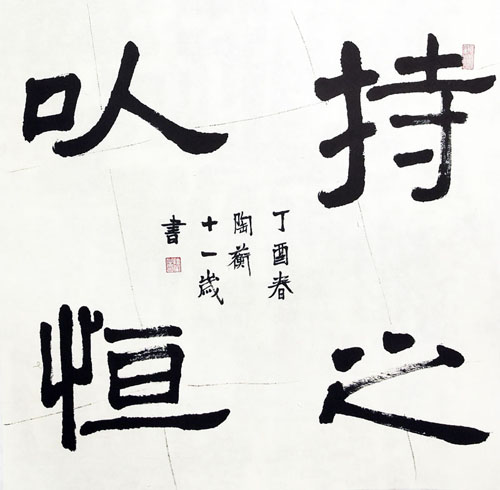 持之
以恒
丁酉春
陶蘅
十一歲
書